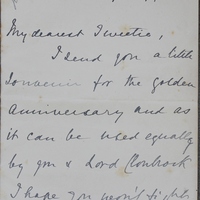 My dearest Tweetie,
I send you a little
Souvenir for the golden
Anniversary and as
it can be used equally
by you & Lord Clonbrock
I hope you won't fight